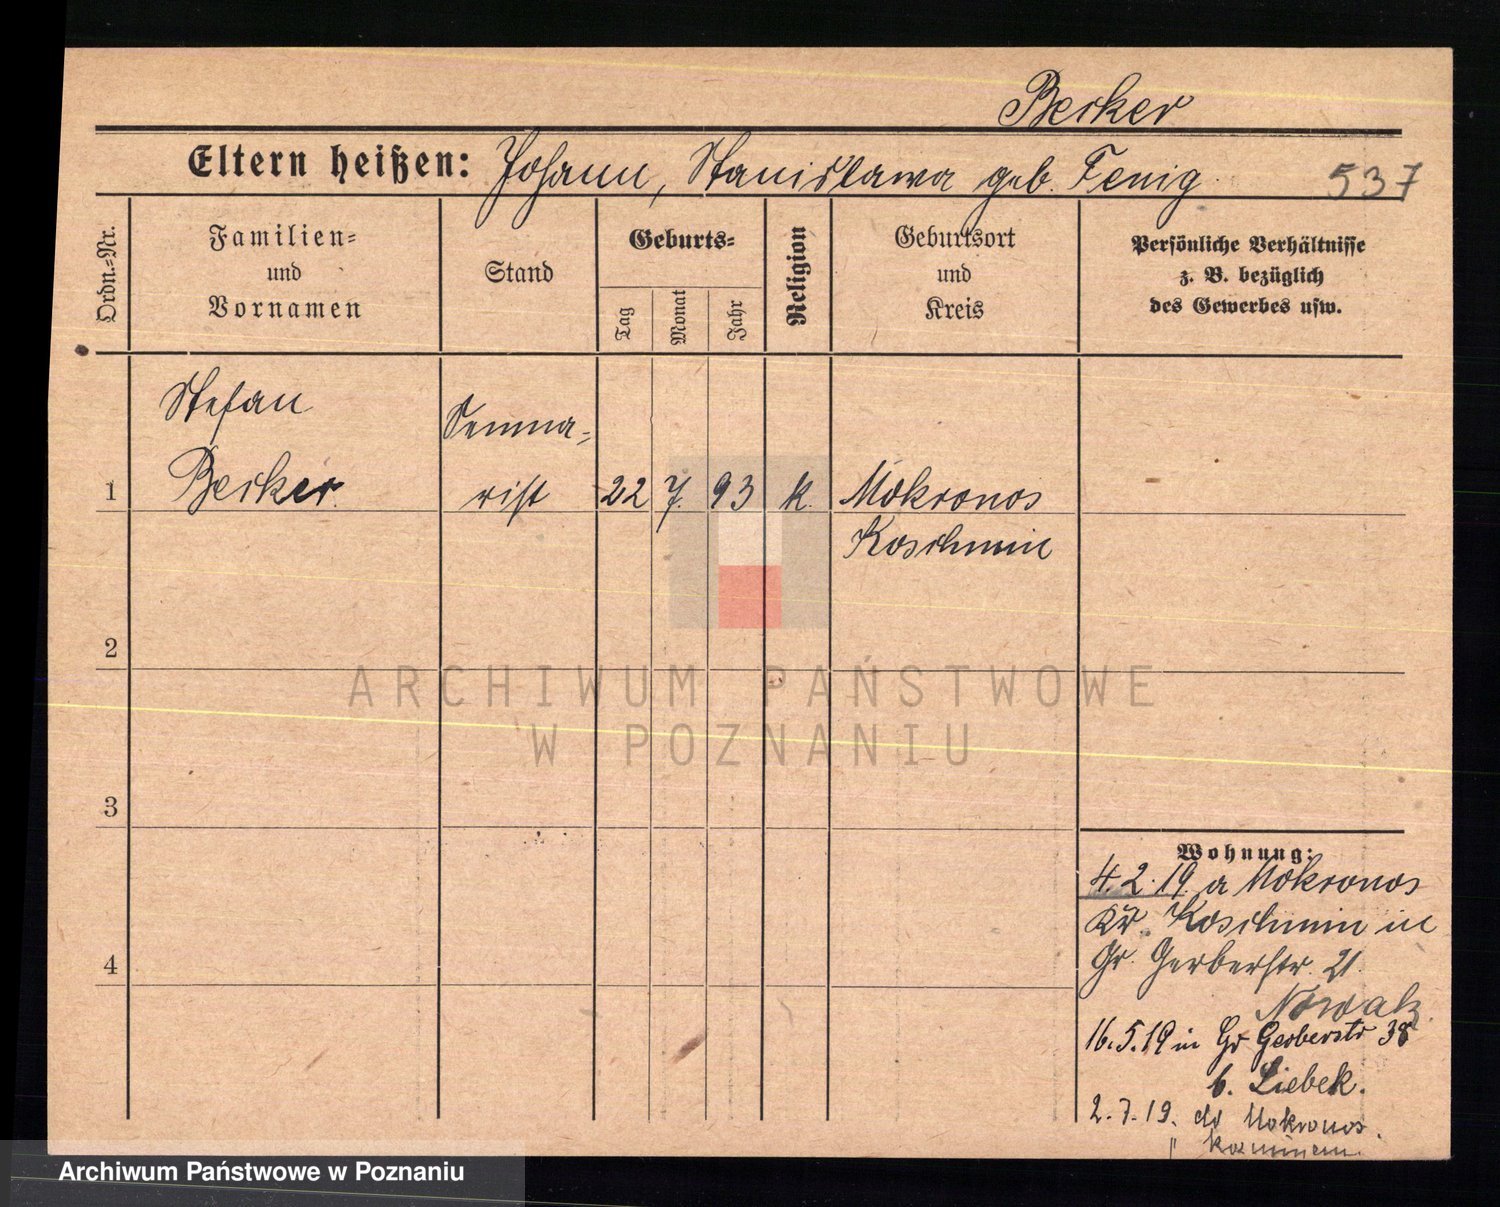 Becker
Eltern heißen: Johann, Stanislawa geb. Fenig 537
Ordn.-Nr.
Familien-
und
Vornamen
Stand
Geburts-
Tag
Monat
Jahr
Religion
Geburtsort
und
Kreis
Persönliche Verhältnisse
z. B. bezüglich
des Gewerbes usw.
Stefan
Becker
Semina-
rist
1 22 7. 93 k. Mokronos
Koschmin
2
3
4
Wohnung:
4.2.19. a Mokronos
Kr. Koschmin in
Gr. Gerberstr. 21.
Nowak.
16.5.19 in Gr Gerberstr 38
b. Liebek.
2.7.19. do Mokronos.
ARCHIWUM PAŃSTWOWE
W POZNANIU
Archiwum Państwowe w Poznaniu